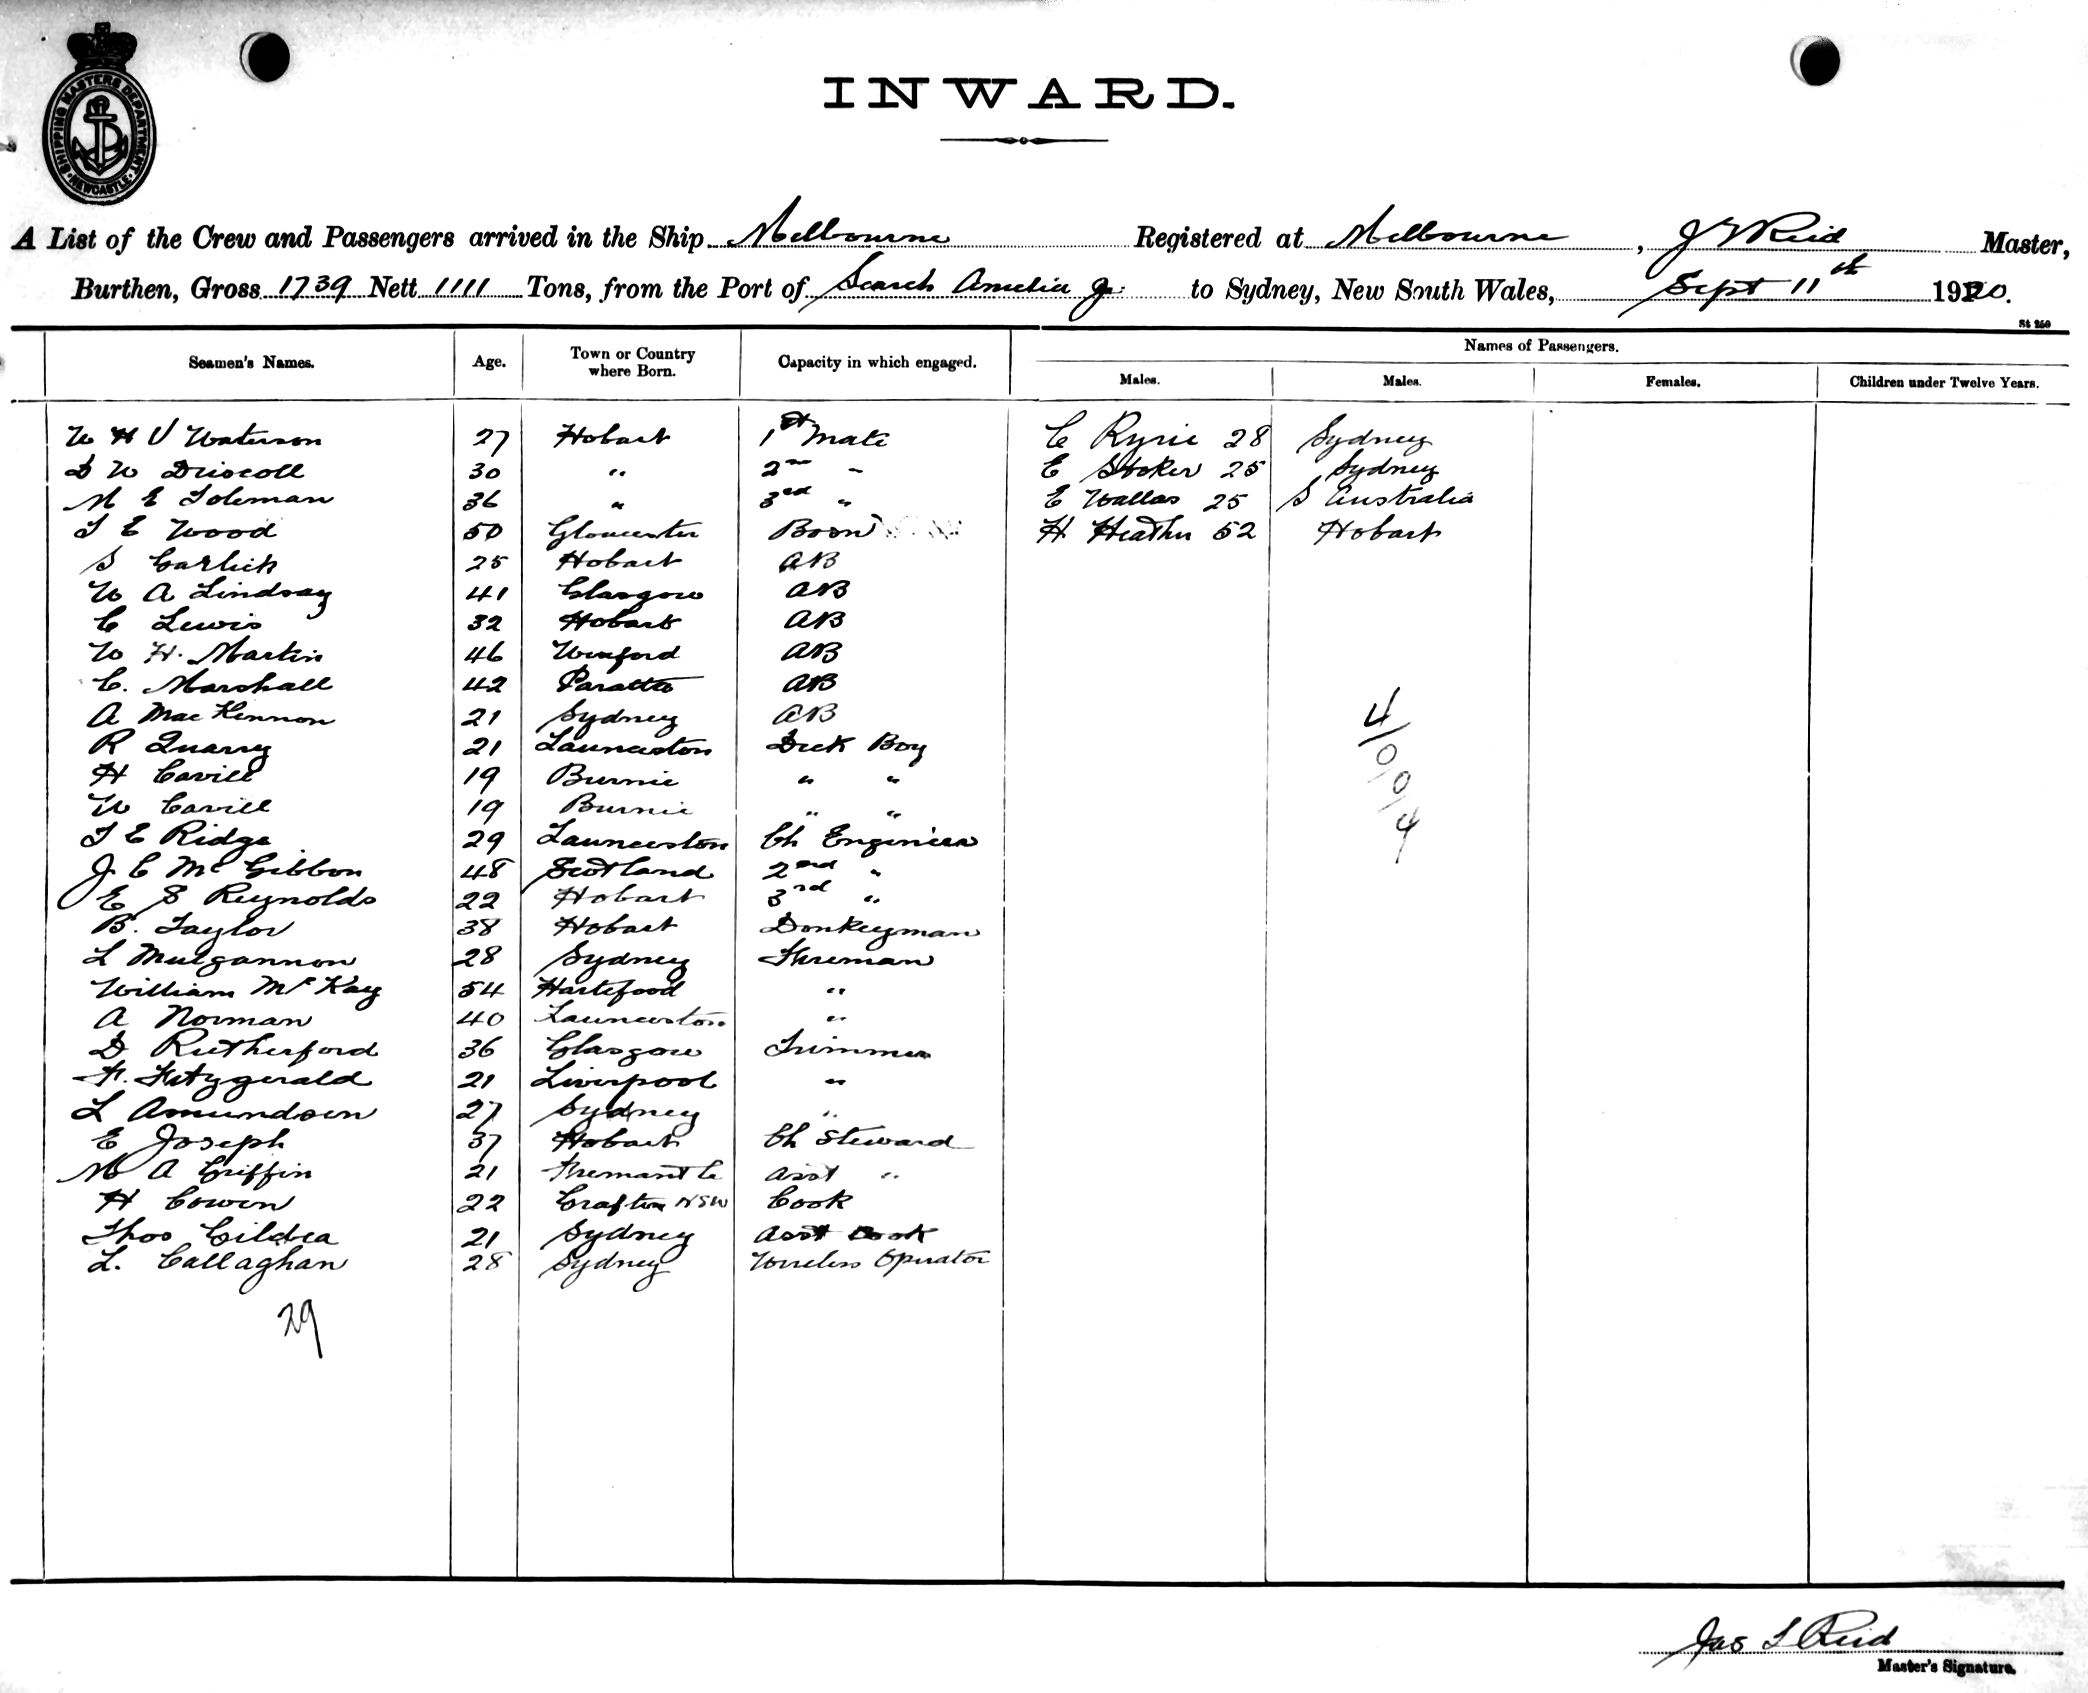 SHIPPING MASTERS DEPARTMENT
NEWCASTLE
INWARD.
A List of the Crew and Passengers arrived in the Ship Melbourne Registered at Melbourne, J T Reid Master,
Burthen, Gross 1739 Nett 1111 Tons, from the Port of Search Amelia J. to Sydney, New South Wales, Sept 11th 1920.
St 250
Seamen's Names. Age. Town or Country where Born. Capacity in which engaged. Names of Passengers.
Males. Males. Females. Children under Twelve Years.
W H V Waterson 27 Hobart 1st Mate C Ryrie 28 Sydney
D W Driscoll 30 " 2nd " E Stoker 25 Sydney
M E Toleman 36 " 3rd " E Wallas 25 S Australia
T E Wood 50 Gloucester Bosn H Heather 52 Hobart
S Garlick 25 Hobart AB
W A Lindsay 41 Glasgow AB
C Lewis 32 Hobart AB
W H. Martin 46 Wexford AB
C. Marshall 42 AB
A MacKennon 21 Sydney AB
R Quarry 21 Launceston Deck Boy
H Cavill 19 Burnie " "
W Cavill 19 Burnie " "
T E Ridge 29 Launceston Ch Engineer
J C McGibbon 48 Scotland 2nd "
E S Reynolds 22 Hobart 3rd "
B. Taylor 38 Hobart Donkeyman
L Mulgannon 28 Sydney Fireman
William McKay 54 "
A Norman 40 Launceston "
D Rutherford 36 Glasgow Trimmer
F. Fitzgerald 21 Liverpool "
L Amundsen 27 Sydney "
E Joseph 37 Hobart Ch Steward
M A Griffin 21 Fremantle Asst "
H Cowen 22 Grafton NSW Cook
Thos Gildea 21 Sydney Asst Cook
L. Callaghan 28 Sydney Wireless Operator
29
4/0/0/4
Jas T Reid
Master's Signature.